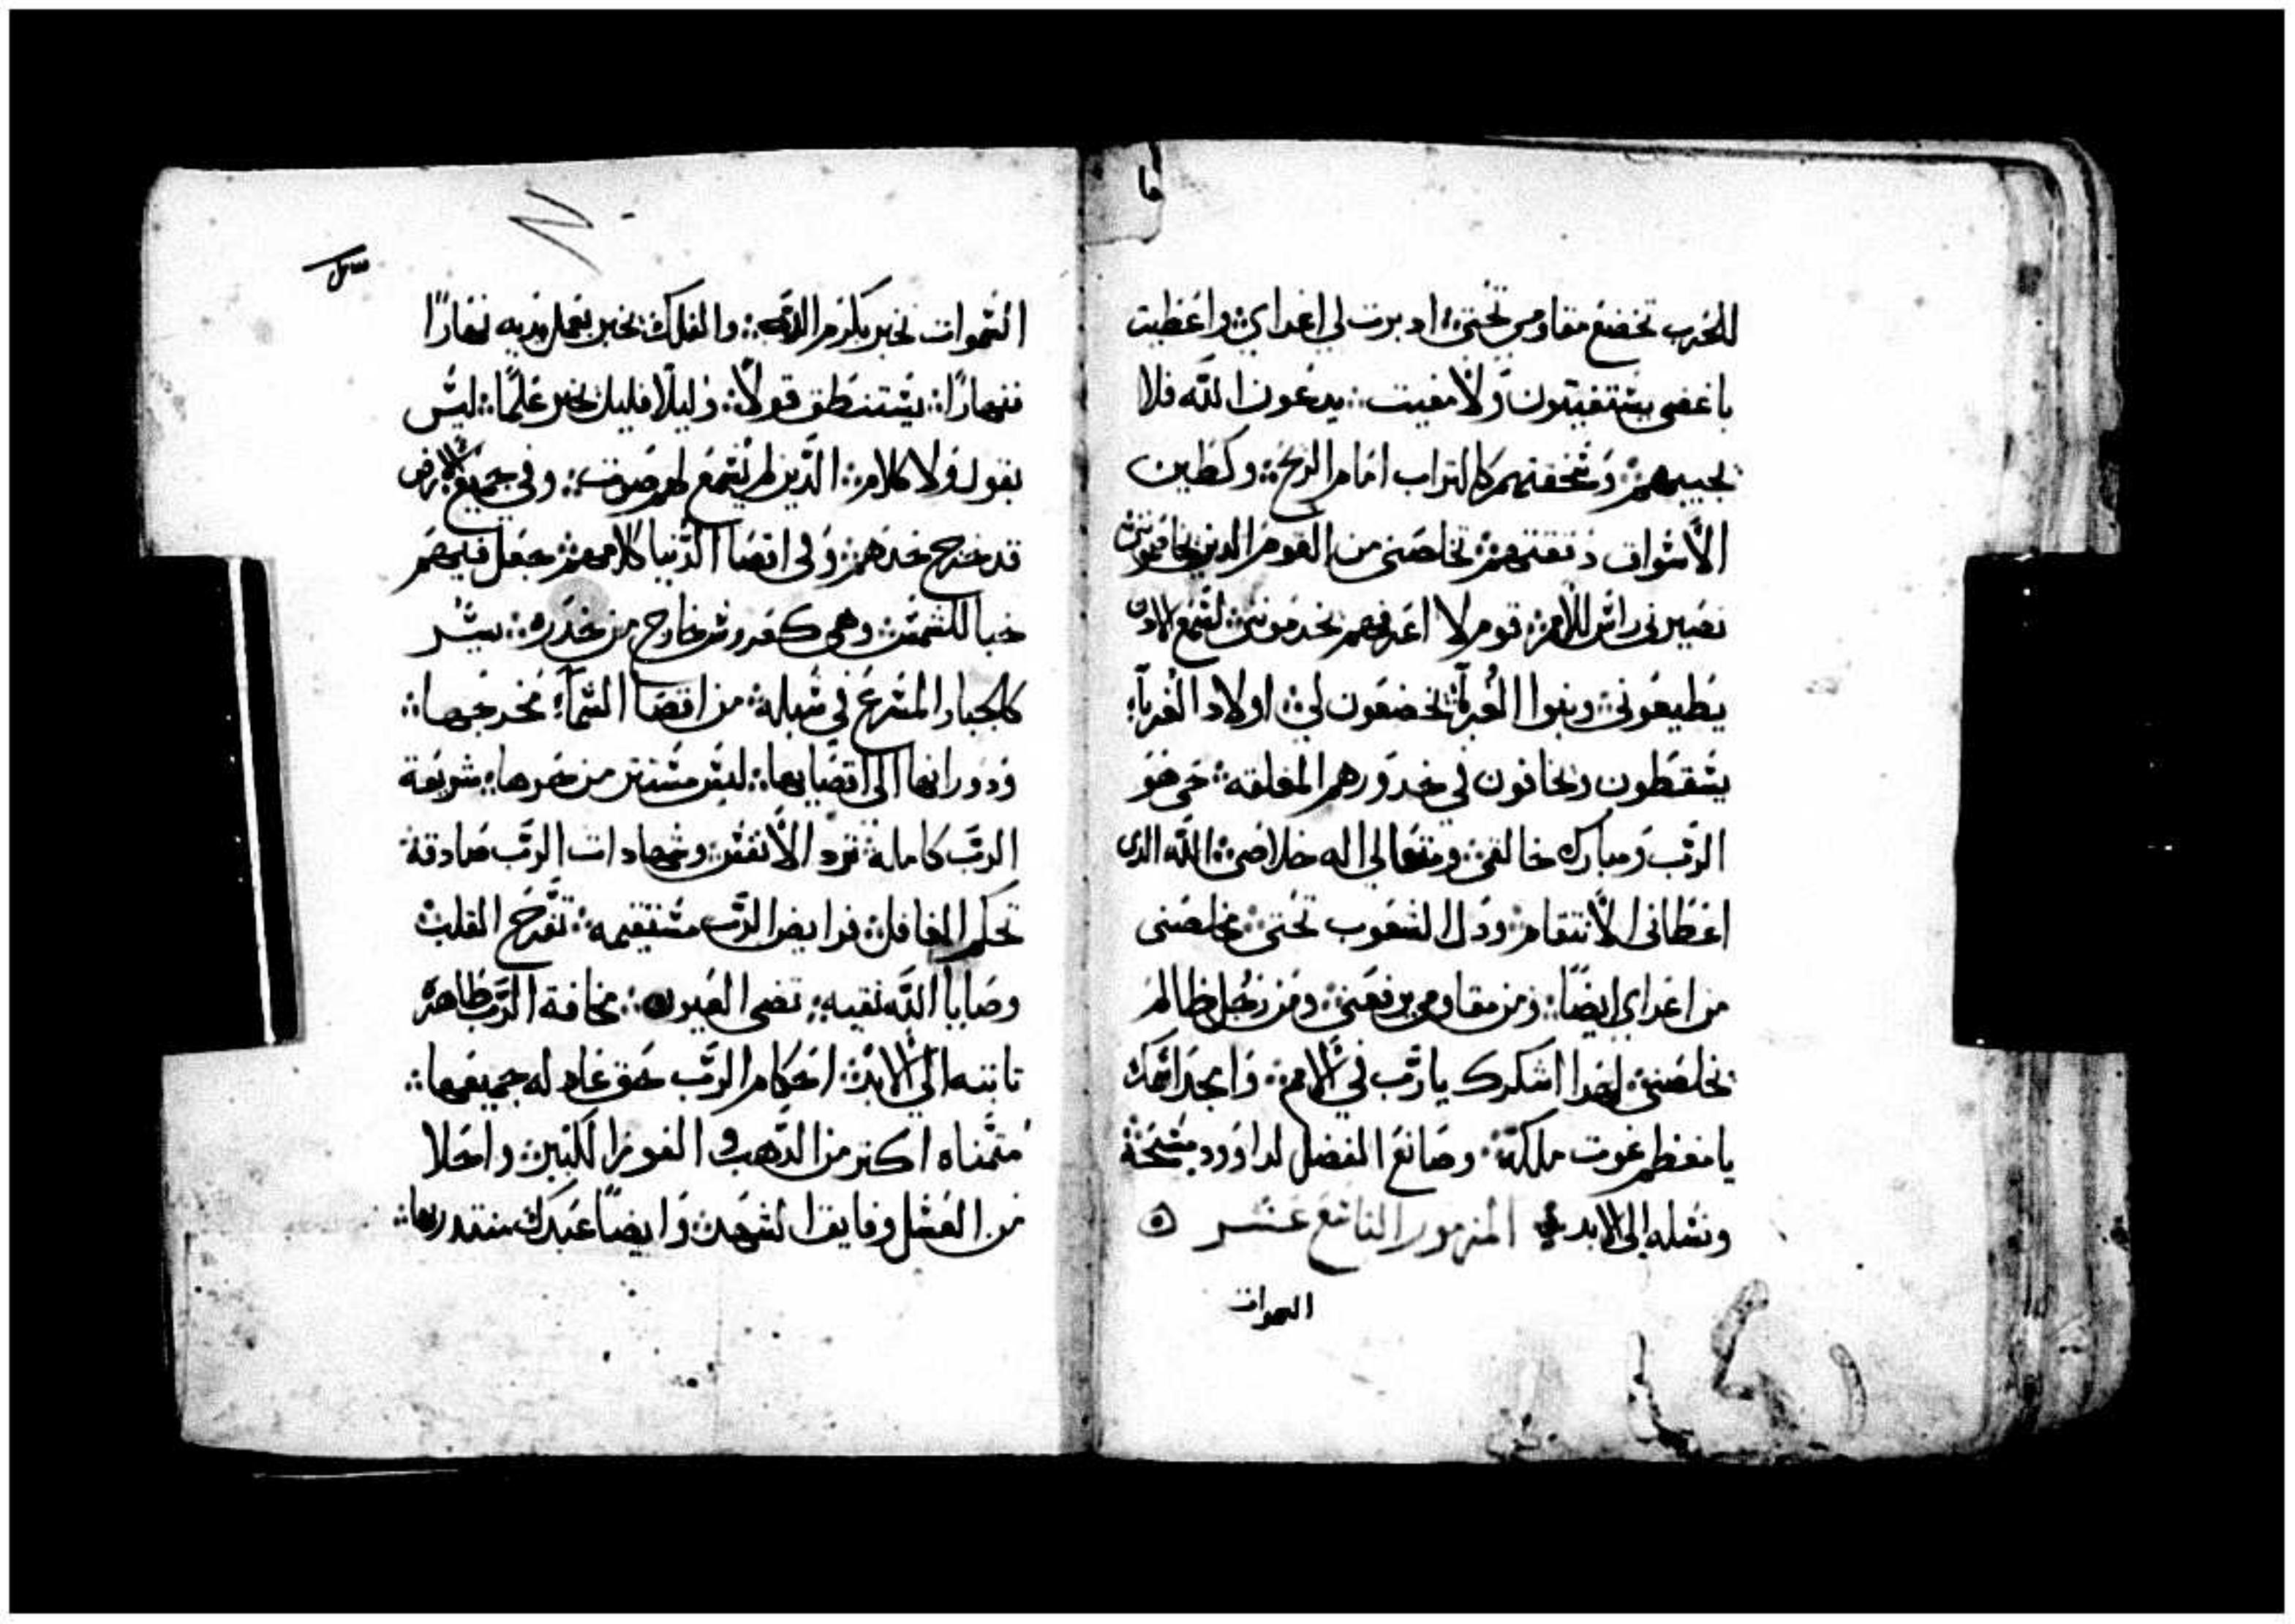 للحرب تخضع مقاومي تحتي ادبرت لي اعداي واعطيت
باغضي يستغيتون ولا مغيت يدعون الله فلا
يجيبهم وسحقتهم كالتراب امام الريح وكطين
الاسواق دققتهم تخلصني من القوم الدين يخاصموني
تصيرني راس للامم قوم لا اعرفهم يخدموني لسمع الادن
يطيعوني وبنوا الغربآ يخضعون لي اولاد الغربآ
يسقطون ويخافون في خدورهم المغلقه حي هو
الرب ومبارك خالقي ومتعالي اله خلاصي الله الدى
اعطانى الانتقام ودل الشعوب تحتي مخلصنى
من اعداي ايضًا ومن مقاومي يرفعني ومن رجل ظالم
تخلصني لهدا اشكرك يا رب في الامم وامجد اسمك
يا معظم غوت ملكه وصانع الفضل لداوود مسيحه
ونسله الى الابد المزمور التاسع عشر
السموات
السموات تخبر بكرم الله والفلك تخبر بعمل يديه نهارًا
فنهارًا يستنطق قولًا وليلًا فليل يخبر علمًا ليس
بقول ولا كلام الدين لم يسمع لهم صوت وفي جميع الارض
قد خرج خدهم وفي اقصا الدنيا كلامهم جعل فيهم
خبا للشمس وهي كعروس خارج من خدره يسر
كالجبار المسرع في سبله من اقصا السمآء مخرجها
ودورانها الى اقصايها ليس مستتر من حرها شريعة
الرب كامله ترد الانفس وشهادات الرب صادقة
تحكم الغافل فرايض الرب مستقيمه تفرح القلب
وصايا الله نقيه تضى العيون مخافة الرب طاهره
تابته الي الابد احكام الرب حق عادله جميعها
متمناه اكتر من الدهب و الفوز الكبير واحلا
من العسل وفايق الشهد وايضًا عبدك منتدر بها